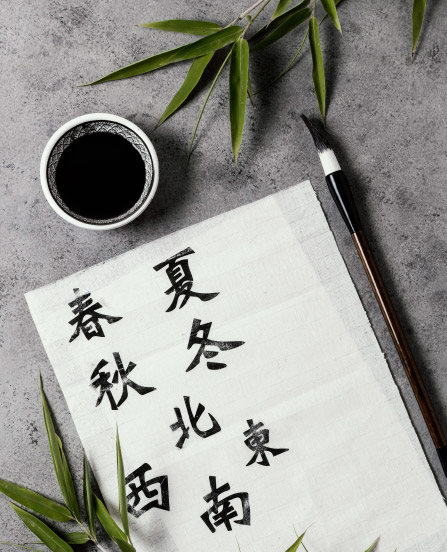 春 夏
秋 冬
北 東
西 南